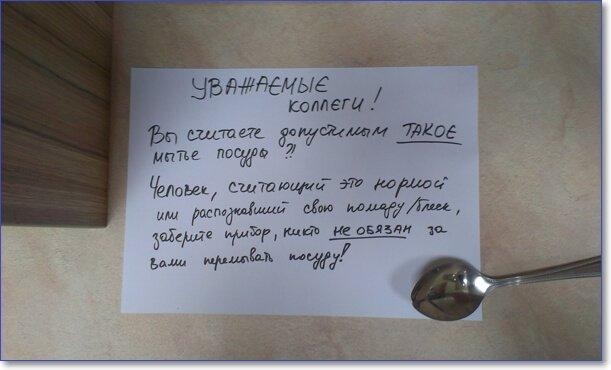 УВАЖАЕМЫЕ
КОЛЛЕГИ!
Вы считаете допустимым ТАКОЕ
мытье посуды?!
Человек, считающий это нормой
или распознавший свою помаду/блеск,
заберите прибор, никто НЕ ОБЯЗАН за
вами перемывать посуду!